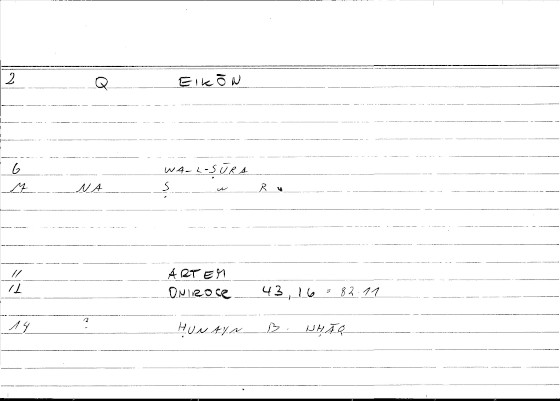 2 Q EIKŌN
6 WA-L-ṢŪRA
NA Ṣ w R
11 ARTEM
12 ONIROCR 43,16 = 82 11
14 ? ḤUNAYN B. ISḤĀQ